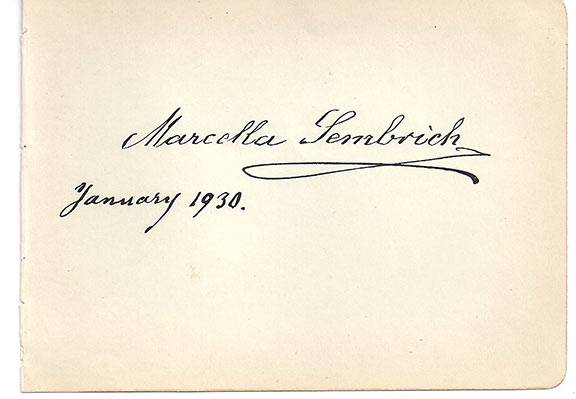 Marcella Sembrich
January 1930.